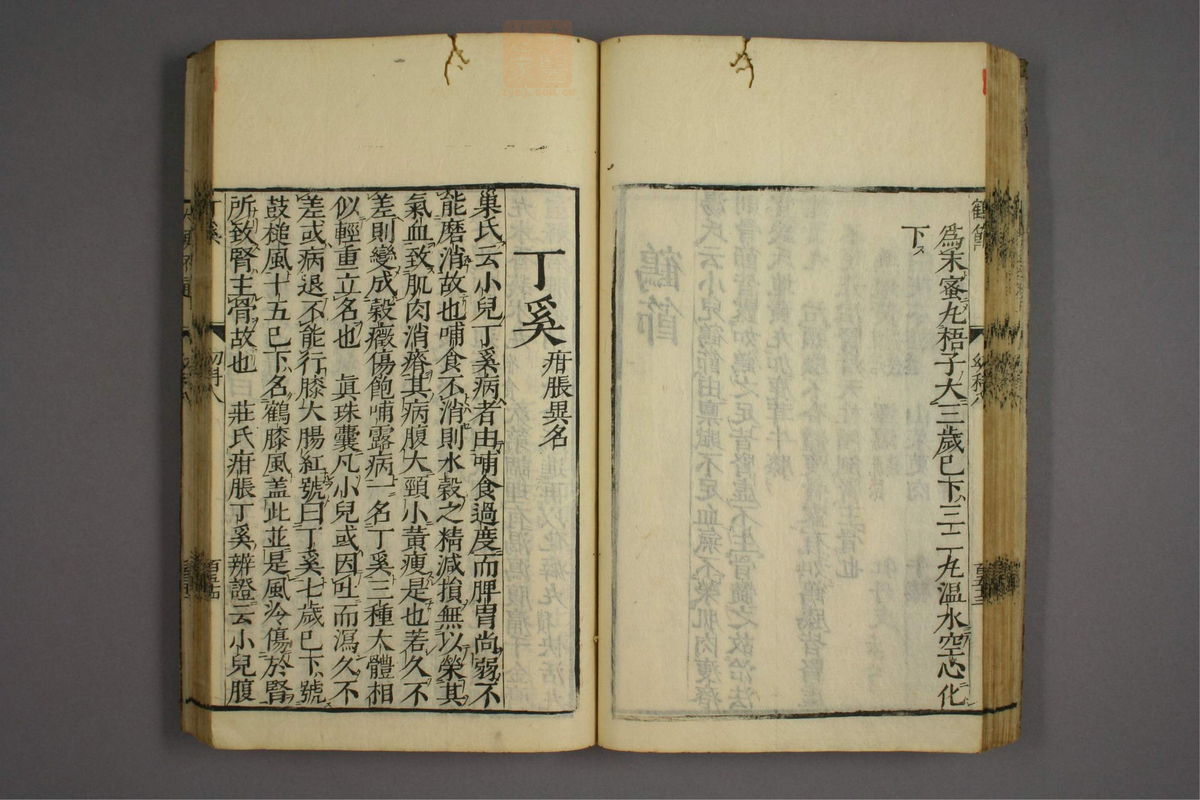 爲末蜜丸梧子大三歲已下三二丸温水空心化
下
丁奚
疳脹異名
巢氏云小兒丁奚病者由哺食過度而脾胃尚弱不
能磨消故也哺食不消則水穀之精減損無以榮其
氣血致肌肉消瘠其病腹大頸小黃瘦是也若久不
差則變成穀癥傷飽哺露病一名丁奚三種大體相
似輕重立名也 眞珠囊凡小兒或因吐而瀉久不
差或病退不能行膝大腸紅號曰丁奚七歲已下號
鼓槌風十五已下名鶴膝風盖此並是風冷傷於腎
所致腎主骨故也 莊氏疳脹丁奚辨證云小兒腹
丁奚